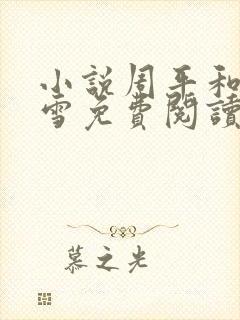 小說周平和
雪免費閱讀
慕之光